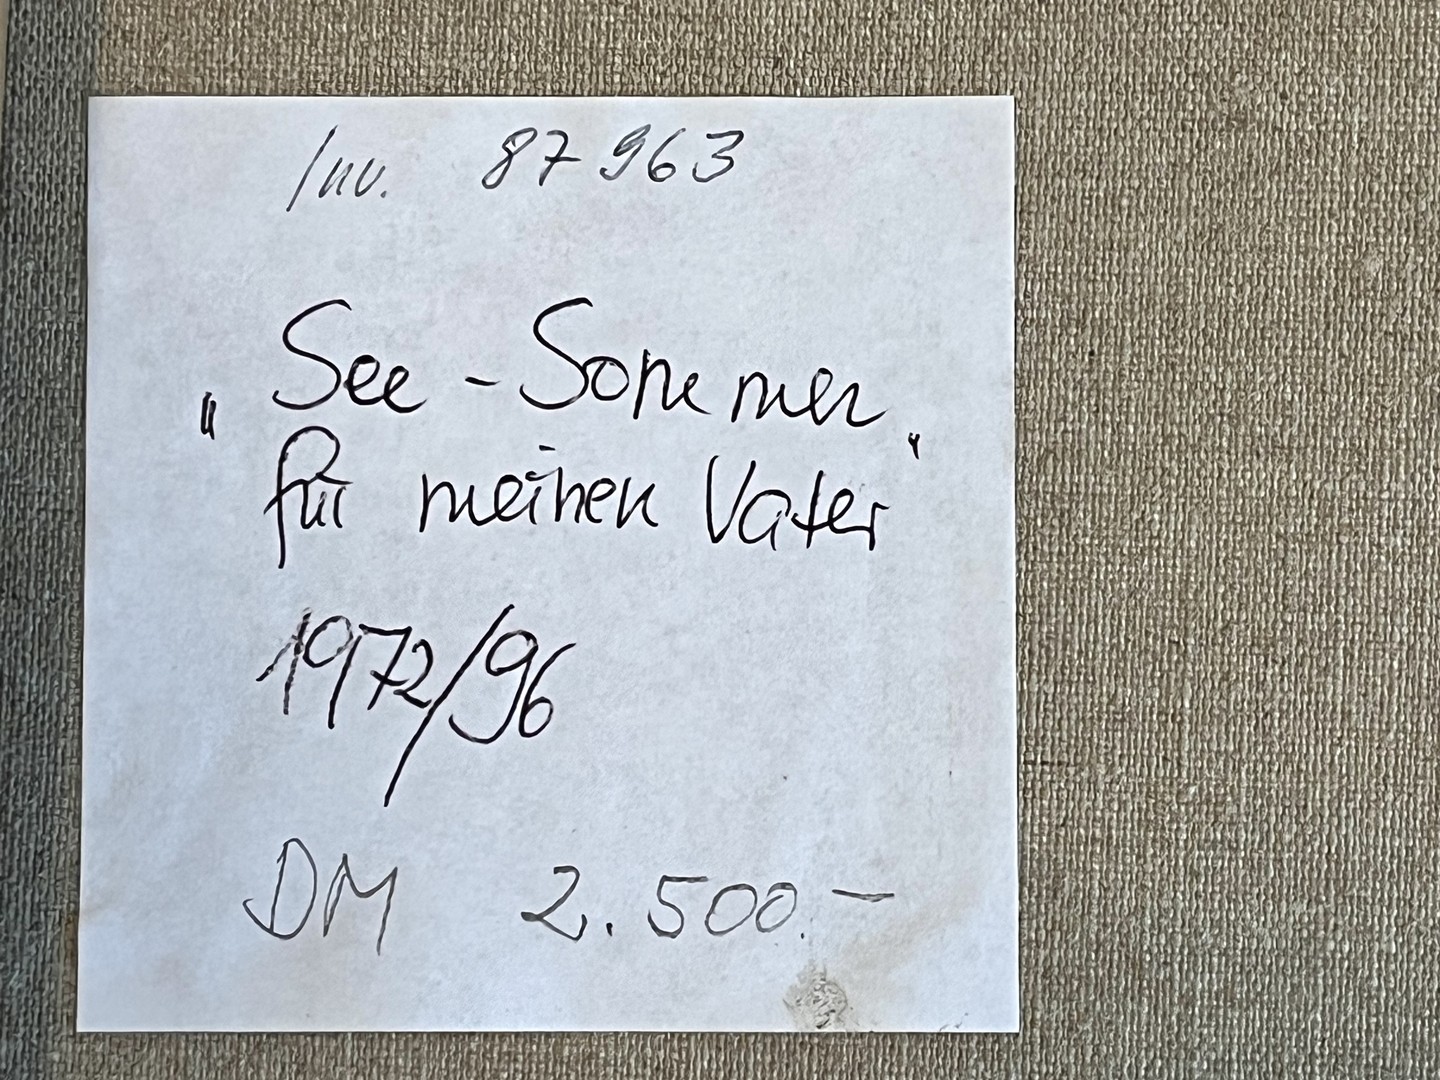 Inv. 87963
„See-Sommer"
für meinen Vater
1972/96
DM 2.500.—